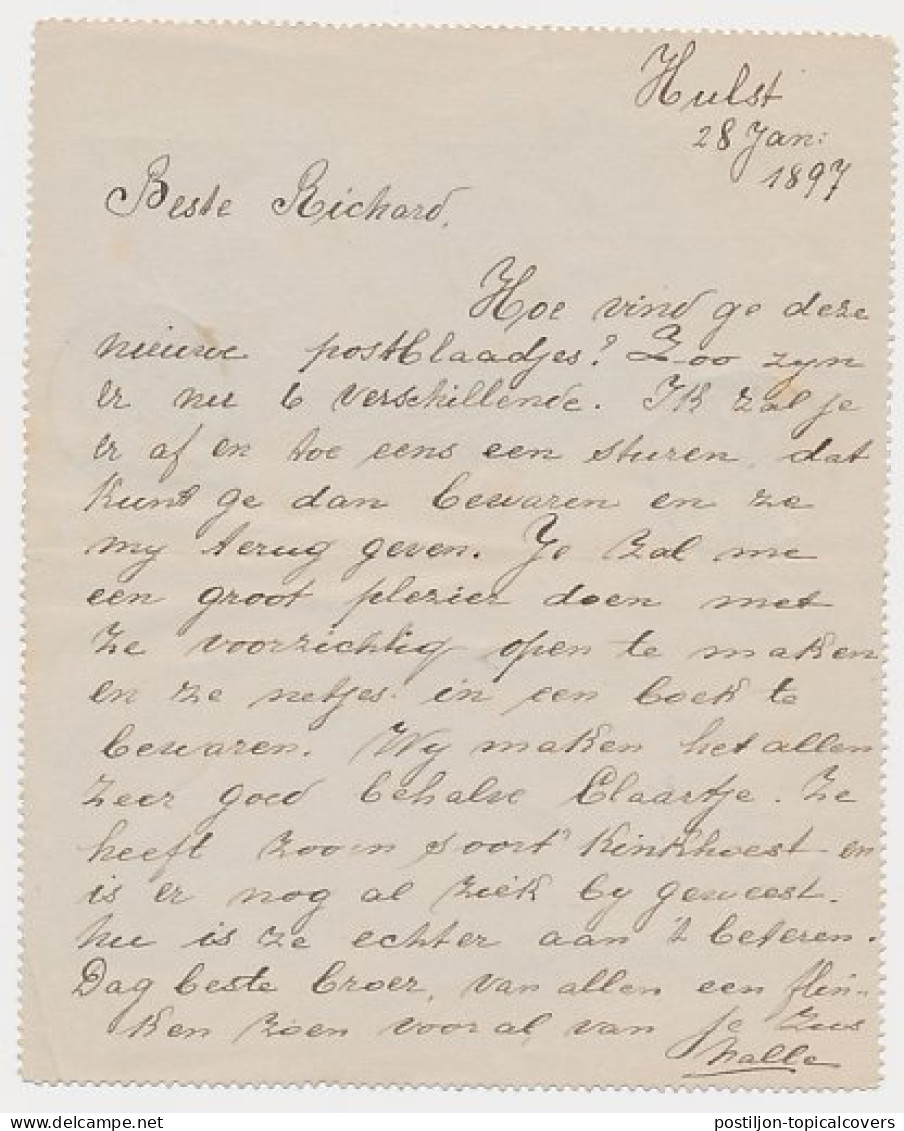 Hulst
28 Jan:
1897
Beste Richard,
Hoe vind ge deze
nieuwe postblaadjes? Zoo zyn
er nu 6 verschillende. Ik zal je
er af en toe eens een sturen, dat
kunt ge dan bewaren en ze
my terug geven. Je zal me
een groot plezier doen met
ze voorzichtig open te maken
en ze netjes in een boek te
bewaren. Wy maken het allen
zeer goed behalve Claartje. Ze
heeft zoo'n soort kinkhoest en
is er nog al ziek by geweest.
Nu is ze echter aan 't beteren.
Dag beste broer, van allen een flin-
ken zoen vooral van je zus
postiljon-topicalcovers